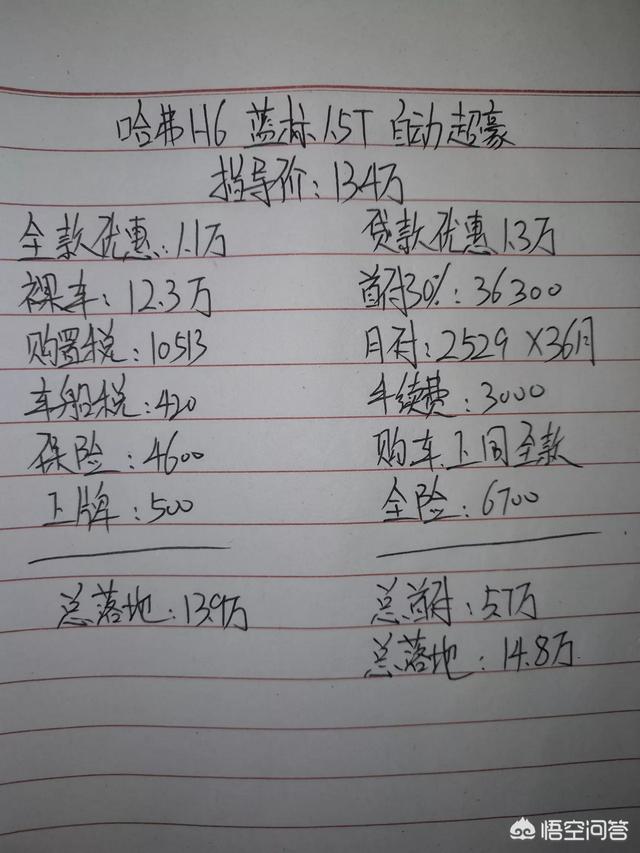 哈弗H6 蓝标1.5T 自动超豪
指导价:13.4万
全款优惠:1.1万
裸车:12.3万
购置税:10513
车船税:420
保险:4600
上牌:500
总落地:13.9万
贷款优惠1.3万
首付30%:36300
月付:2529 X36月
手续费:3000
购车上同全款
全险:6700
总首付:5.7万
总落地:14.8万
悟空问答